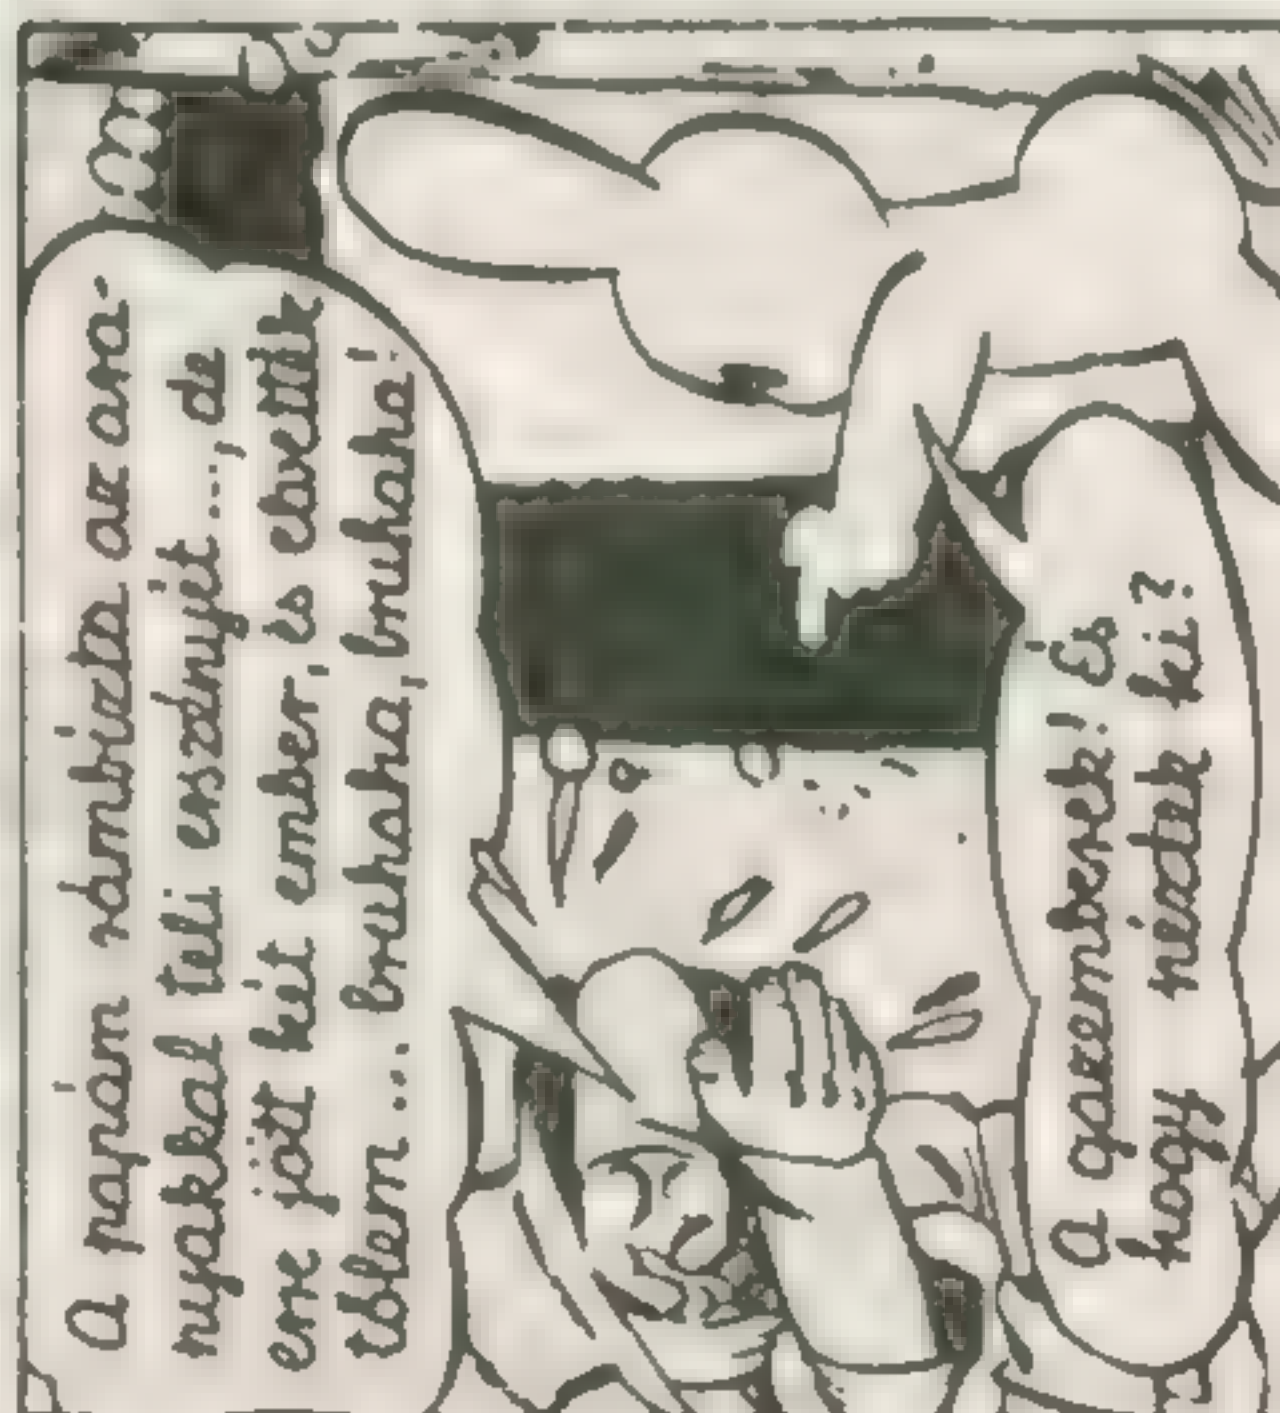 A papám rámbízta az ara-
nyakkal teli erszényét..., de
erre jött két ember, és elvették
tőlem... bruhaha, bruhaha!
A gazemberek! És
hogy néztek ki?